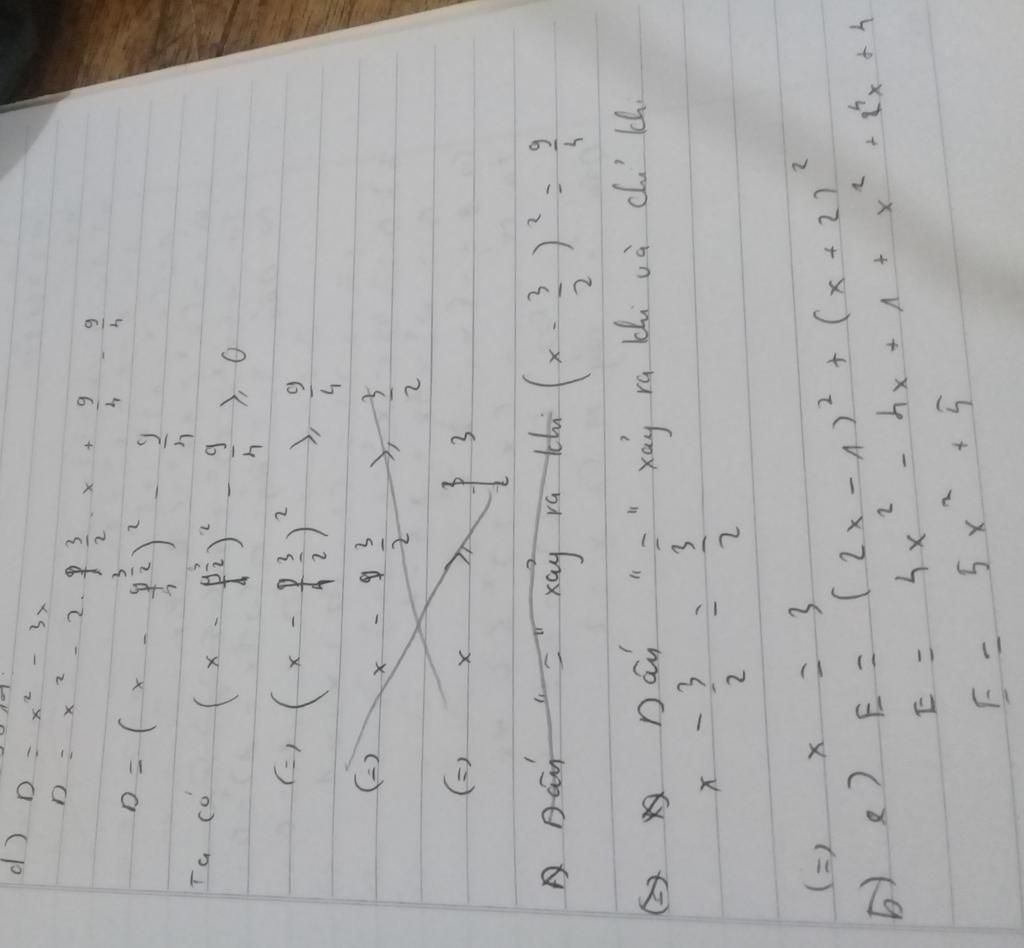 d) D = x² - 3x
D = x² - 2 . 3/2 . x + 9/4 - 9/4
D = ( x - 3/2 )² - 9/4
Ta có ( x - 3/2 )² - 9/4 ⩾ 0
(=) ( x - 3/2 )² ⩾ 9/4
(=) x - 3/2 ⩾ 3/2
(=) x ⩾ 3
Dấu "=" xảy ra khi ( x - 3/2 )² = 9/4
(=) Dấu "=" xảy ra khi và chỉ khi
x - 3/2 = 3/2
(=) x = 3
b) e) E = ( 2x - 1 )² + ( x + 2 )²
E = 4x² - 4x + 1 + x² + 4x + 4
E = 5x² + 5